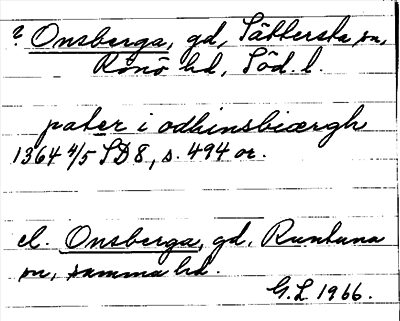 ? Onsberga, gd, Sättersta sn,
Rönö hd, Söd. l.
pater i odhinsbiærgh
1364 4/5 SD 8, s. 494 or.
el. Onsberga, gd, Runtuna
sn, samma hd.
G.L 1966.